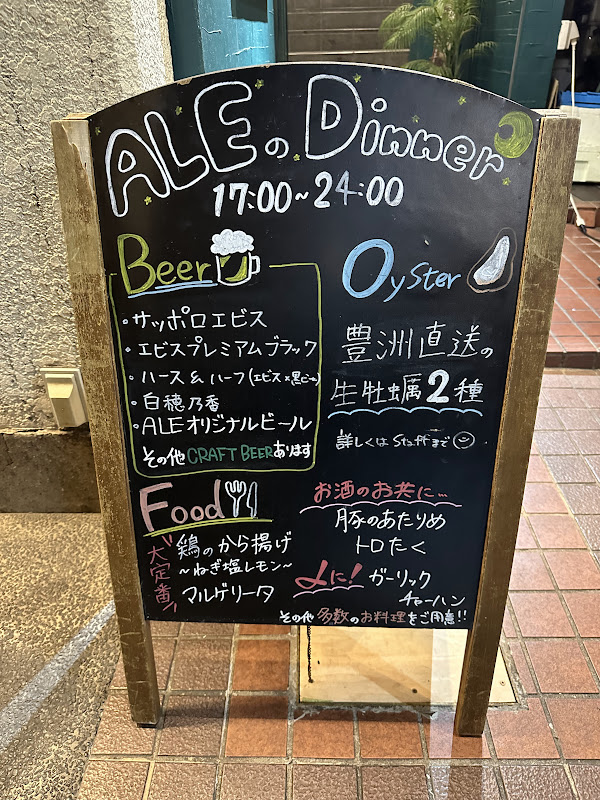 ALEの Dinner
17:00~24:00
Beer
・サッポロエビス
・エビスプレミアムブラック
・ハース & ハーフ(エビス×黒ビール)
・白穂乃香
・ALEオリジナルビール
その他 CRAFT BEER あります
Oyster
豊洲直送の
生牡蠣2種
詳しくは Staffまで
Food
大定番!
鶏のから揚げ
~ねぎ塩レモン~
マルゲリータ
お酒のお共に…
豚のあたりめ
トロたく
〆に! ガーリック
チャーハン
その他 多数のお料理をご用意!!